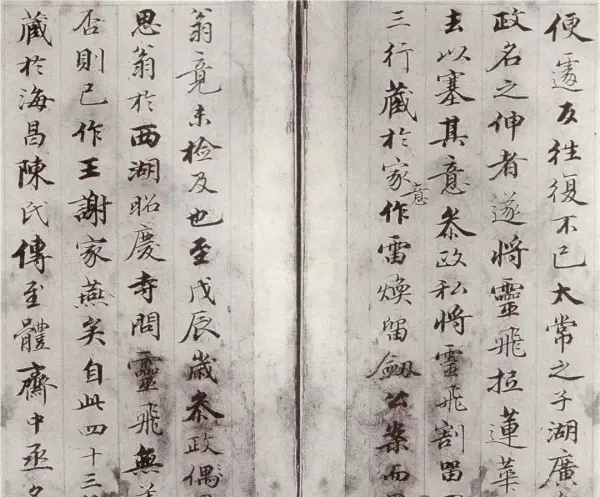 便遽反往復不已太常之子湖廣
政名之伸者遂將靈飛拉蓮華
去以塞其意叅政私將靈飛割留
三行藏於家意作雷煥留劔公案而
翁竟未檢及也至戊辰歲叅政偶
思翁於西湖昭慶寺問靈飛無
否則已作王謝家燕矣自此四十三
藏於海昌陳氏傳至體齋中丞